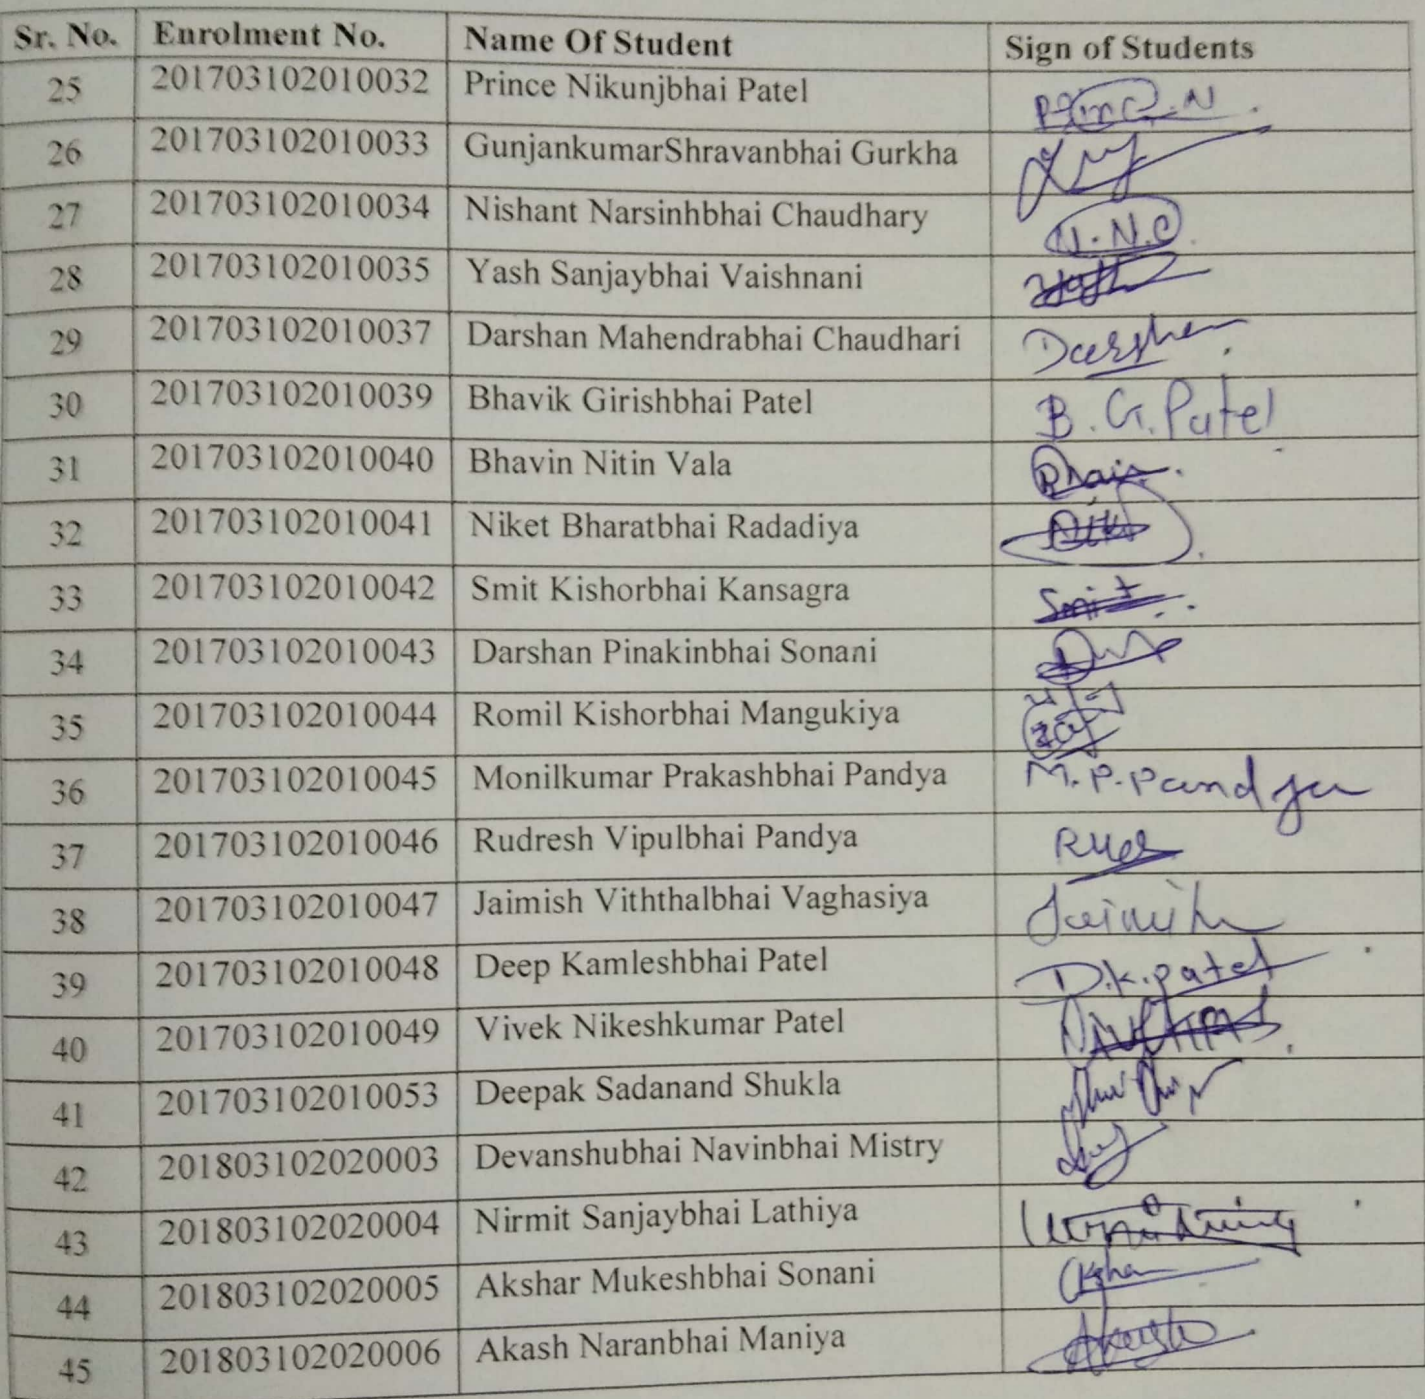 Sr. No. Enrolment No. Name Of Student Sign of Students
25 201703102010032 Prince Nikunjbhai Patel
26 201703102010033 GunjankumarShravanbhai Gurkha
27 201703102010034 Nishant Narsinhbhai Chaudhary N.N.C
28 201703102010035 Yash Sanjaybhai Vaishnani
29 201703102010037 Darshan Mahendrabhai Chaudhari Darshan
30 201703102010039 Bhavik Girishbhai Patel B.G.Patel
31 201703102010040 Bhavin Nitin Vala
32 201703102010041 Niket Bharatbhai Radadiya
33 201703102010042 Smit Kishorbhai Kansagra Smit
34 201703102010043 Darshan Pinakinbhai Sonani
35 201703102010044 Romil Kishorbhai Mangukiya
36 201703102010045 Monilkumar Prakashbhai Pandya M.P.Pandya
37 201703102010046 Rudresh Vipulbhai Pandya
38 201703102010047 Jaimish Viththalbhai Vaghasiya
39 201703102010048 Deep Kamleshbhai Patel D.K.patel
40 201703102010049 Vivek Nikeshkumar Patel
41 201703102010053 Deepak Sadanand Shukla
42 201803102020003 Devanshubhai Navinbhai Mistry
43 201803102020004 Nirmit Sanjaybhai Lathiya
44 201803102020005 Akshar Mukeshbhai Sonani
45 201803102020006 Akash Naranbhai Maniya